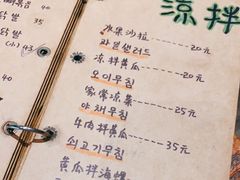 凉拌
水果沙拉 20元
과일샐러드
凉拌黄瓜 20元
오이무침
家常凉菜 25元
야채무침
牛肉拌黄瓜 35元
쇠고기무침
黄瓜拌海螺
닭발
40
35
닭발
(小) 43
40